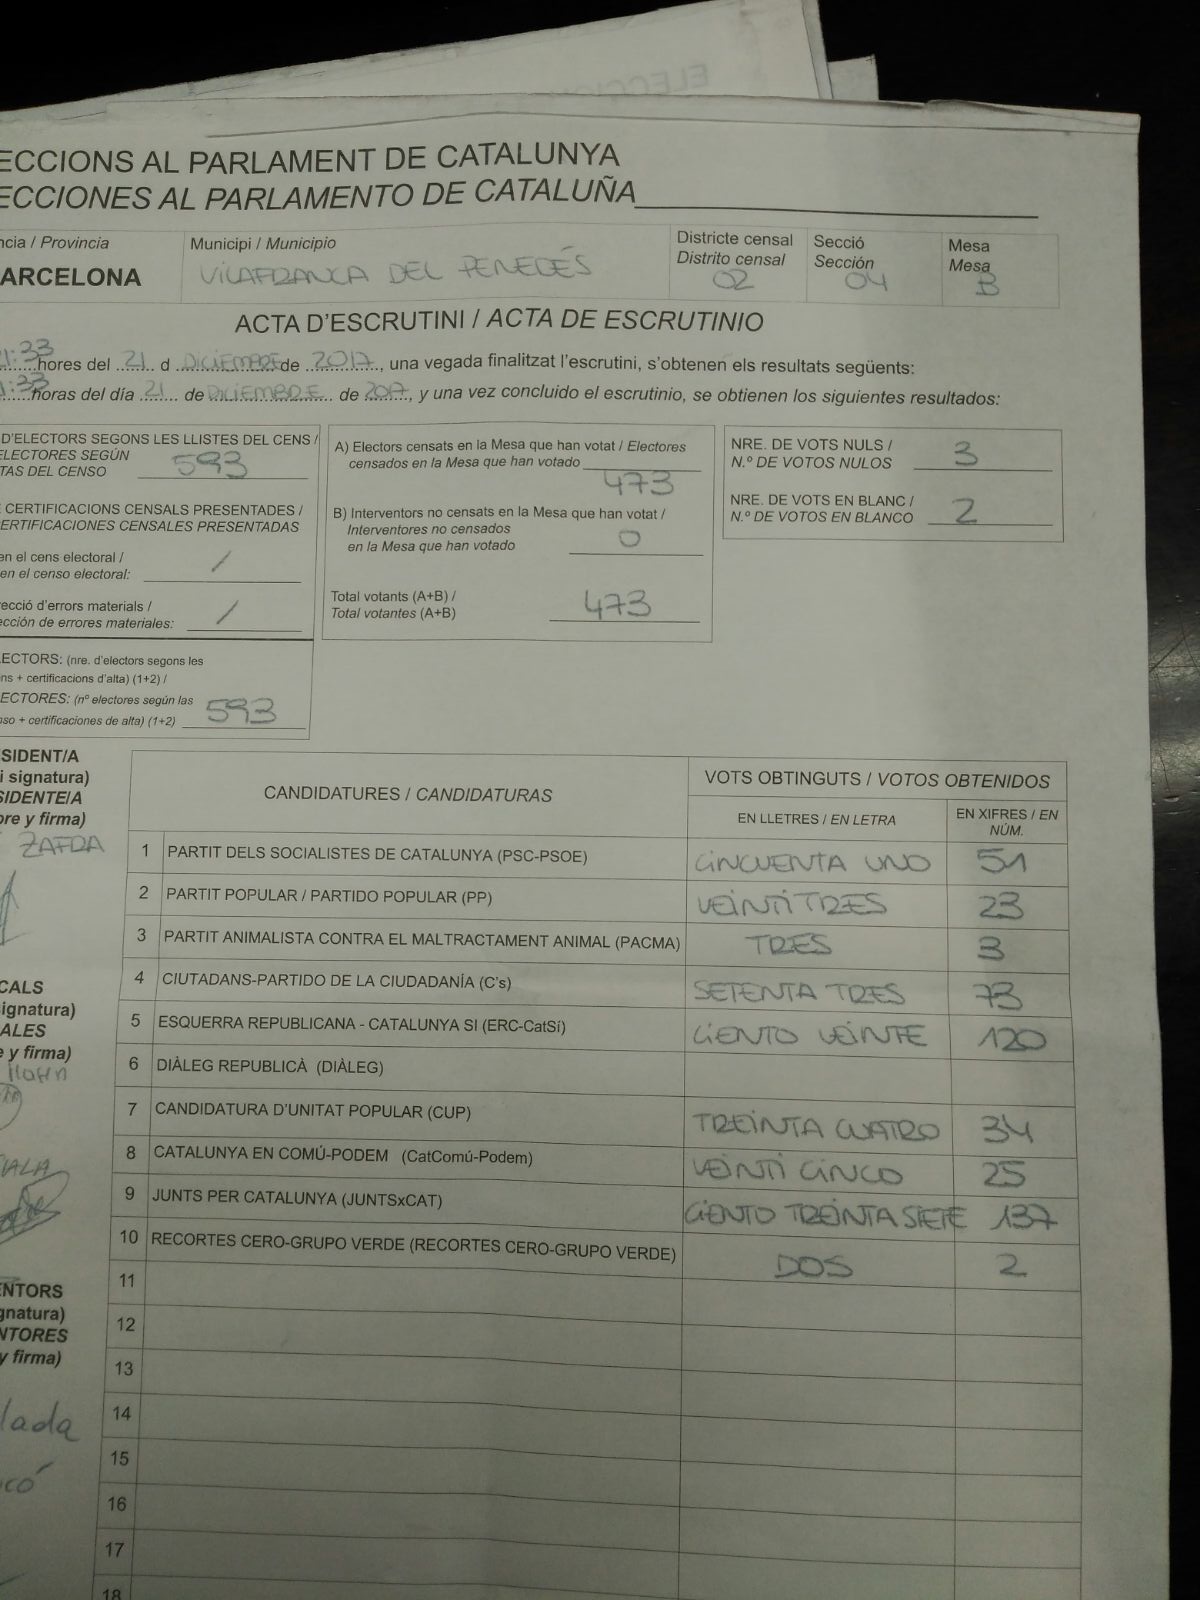 ELECCIO
ECCIONS AL PARLAMENT DE CATALUNYA
ECCIONES AL PARLAMENTO DE CATALUÑA
ncia / Provincia
ARCELONA
Municipi / Municipio
VILAFRANCA DEL PENEDÉS
Districte censal
Distrito censal
02
Secció
Sección
04
Mesa
Mesa
B
ACTA D'ESCRUTINI / ACTA DE ESCRUTINIO
1:33 hores del 21 d DICIEMBRE de 2017, una vegada finalitzat l'escrutini, s'obtenen els resultats següents:
1:33 horas del día 21 de DICIEMBRE de 2017, y una vez concluido el escrutinio, se obtienen los siguientes resultados:
D'ELECTORS SEGONS LES LLISTES DEL CENS /
ELECTORES SEGÚN
TAS DEL CENSO 593
CERTIFICACIONS CENSALS PRESENTADES /
ERTIFICACIONES CENSALES PRESENTADAS
en el cens electoral /
en el censo electoral: /
recció d'errors materials /
cción de errores materiales: /
ECTORS: (nre. d'electors segons les
ns + certificacions d'alta) (1+2) /
ECTORES: (nº electores según las
nso + certificaciones de alta) (1+2) 593
A) Electors censats en la Mesa que han votat / Electores
censados en la Mesa que han votado
473
B) Interventors no censats en la Mesa que han votat /
Interventores no censados
en la Mesa que han votado 0
Total votants (A+B) /
Total votantes (A+B) 473
NRE. DE VOTS NULS /
N.º DE VOTOS NULOS 3
NRE. DE VOTS EN BLANC /
N.º DE VOTOS EN BLANCO 2
SIDENT/A
i signatura)
SIDENTE/A
bre y firma)
ZAFRA
CALS
signatura)
ALES
e y firma)
ENTORS
gnatura)
NTORES
y firma)
lada
icó
CANDIDATURES / CANDIDATURAS
VOTS OBTINGUTS / VOTOS OBTENIDOS
EN LLETRES / EN LETRA
EN XIFRES / EN
NÚM.
1 PARTIT DELS SOCIALISTES DE CATALUNYA (PSC-PSOE) CINCUENTA UNO 51
2 PARTIT POPULAR / PARTIDO POPULAR (PP) VEINTITRES 23
3 PARTIT ANIMALISTA CONTRA EL MALTRACTAMENT ANIMAL (PACMA) TRES 3
4 CIUTADANS-PARTIDO DE LA CIUDADANÍA (C's) SETENTA TRES 73
5 ESQUERRA REPUBLICANA - CATALUNYA SI (ERC-CatSí) CIENTO VEINTE 120
6 DIÀLEG REPUBLICÀ (DIÀLEG)
7 CANDIDATURA D'UNITAT POPULAR (CUP) TREINTA CUATRO 34
8 CATALUNYA EN COMÚ-PODEM (CatComú-Podem) VEINTI CINCO 25
9 JUNTS PER CATALUNYA (JUNTSxCAT) CIENTO TREINTA SIETE 137
10 RECORTES CERO-GRUPO VERDE (RECORTES CERO-GRUPO VERDE) DOS 2
11
12
13
14
15
16
17
18